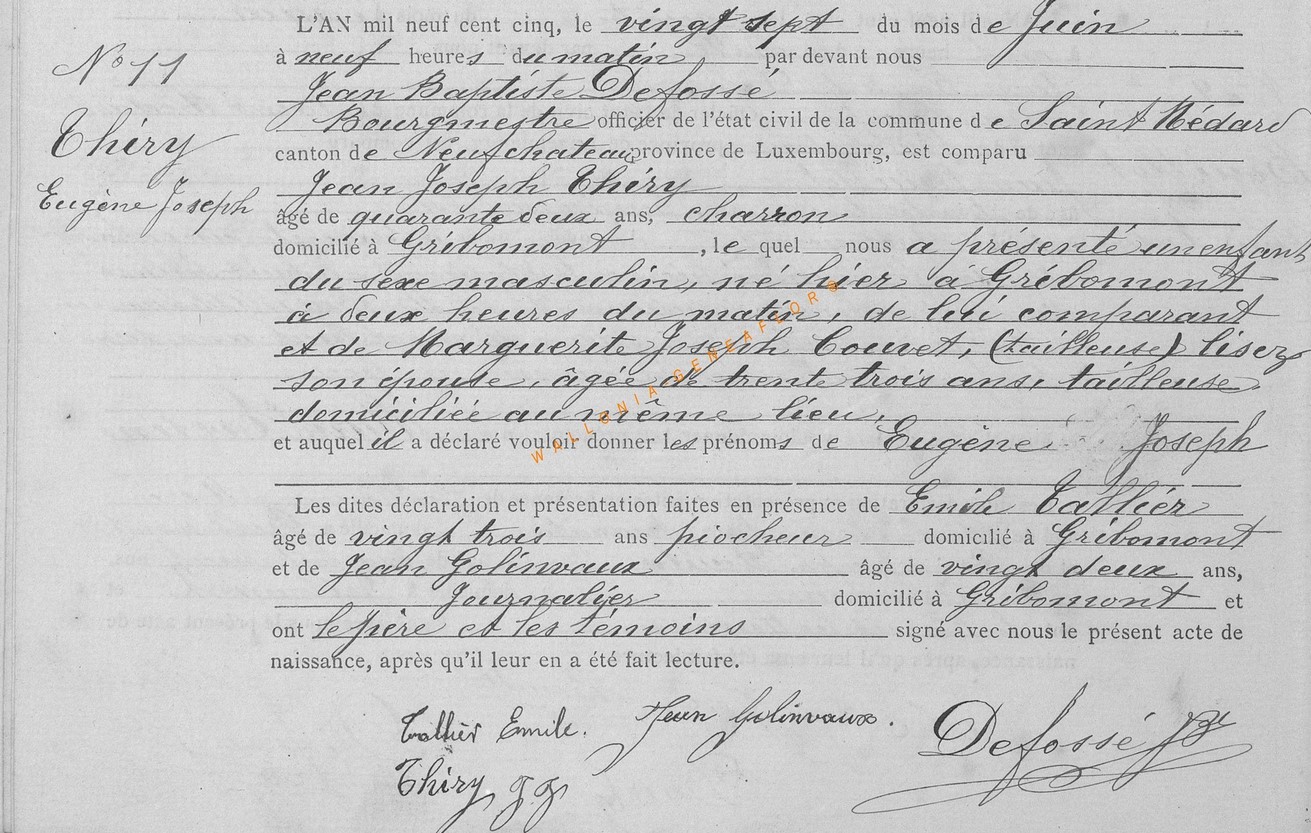 L'AN mil neuf cent cinq, le vingt sept du mois de Juin
No 11
à neuf heures du matin par devant nous
Jean Baptiste Defossé
Bourgmestre officier de l'état civil de la commune de Saint Médard
Thiry
canton de Neufchateau province de Luxembourg, est comparu
Jean Joseph Thiry
Eugène Joseph
âgé de quarante deux ans, charron
domicilié à Gribomont, lequel nous a présenté un enfant
du sexe masculin, né hier a Gribomont
à deux heures du matin, de lui comparant
et de Marguerite Joseph Couvet, (tailleuse) lisez
son épouse, âgée de trente trois ans, tailleuse
domiciliée au même lieu,
et auquel il a déclaré vouloir donner les prénoms de Eugène Joseph
Les dites déclaration et présentation faites en présence de Emile Tallier
âgé de vingt trois ans piocheur domicilié à Gribomont
et de Jean Golinvaux âgé de vingt deux ans,
Journalier domicilié à Gribomont et
ont le père et les témoins signé avec nous le présent acte de
naissance, après qu'il leur en a été fait lecture.
Tallier Emile. Jean Golinvaux. Defossé JB
Thiry J J
WALLONIA GENEAFLORE